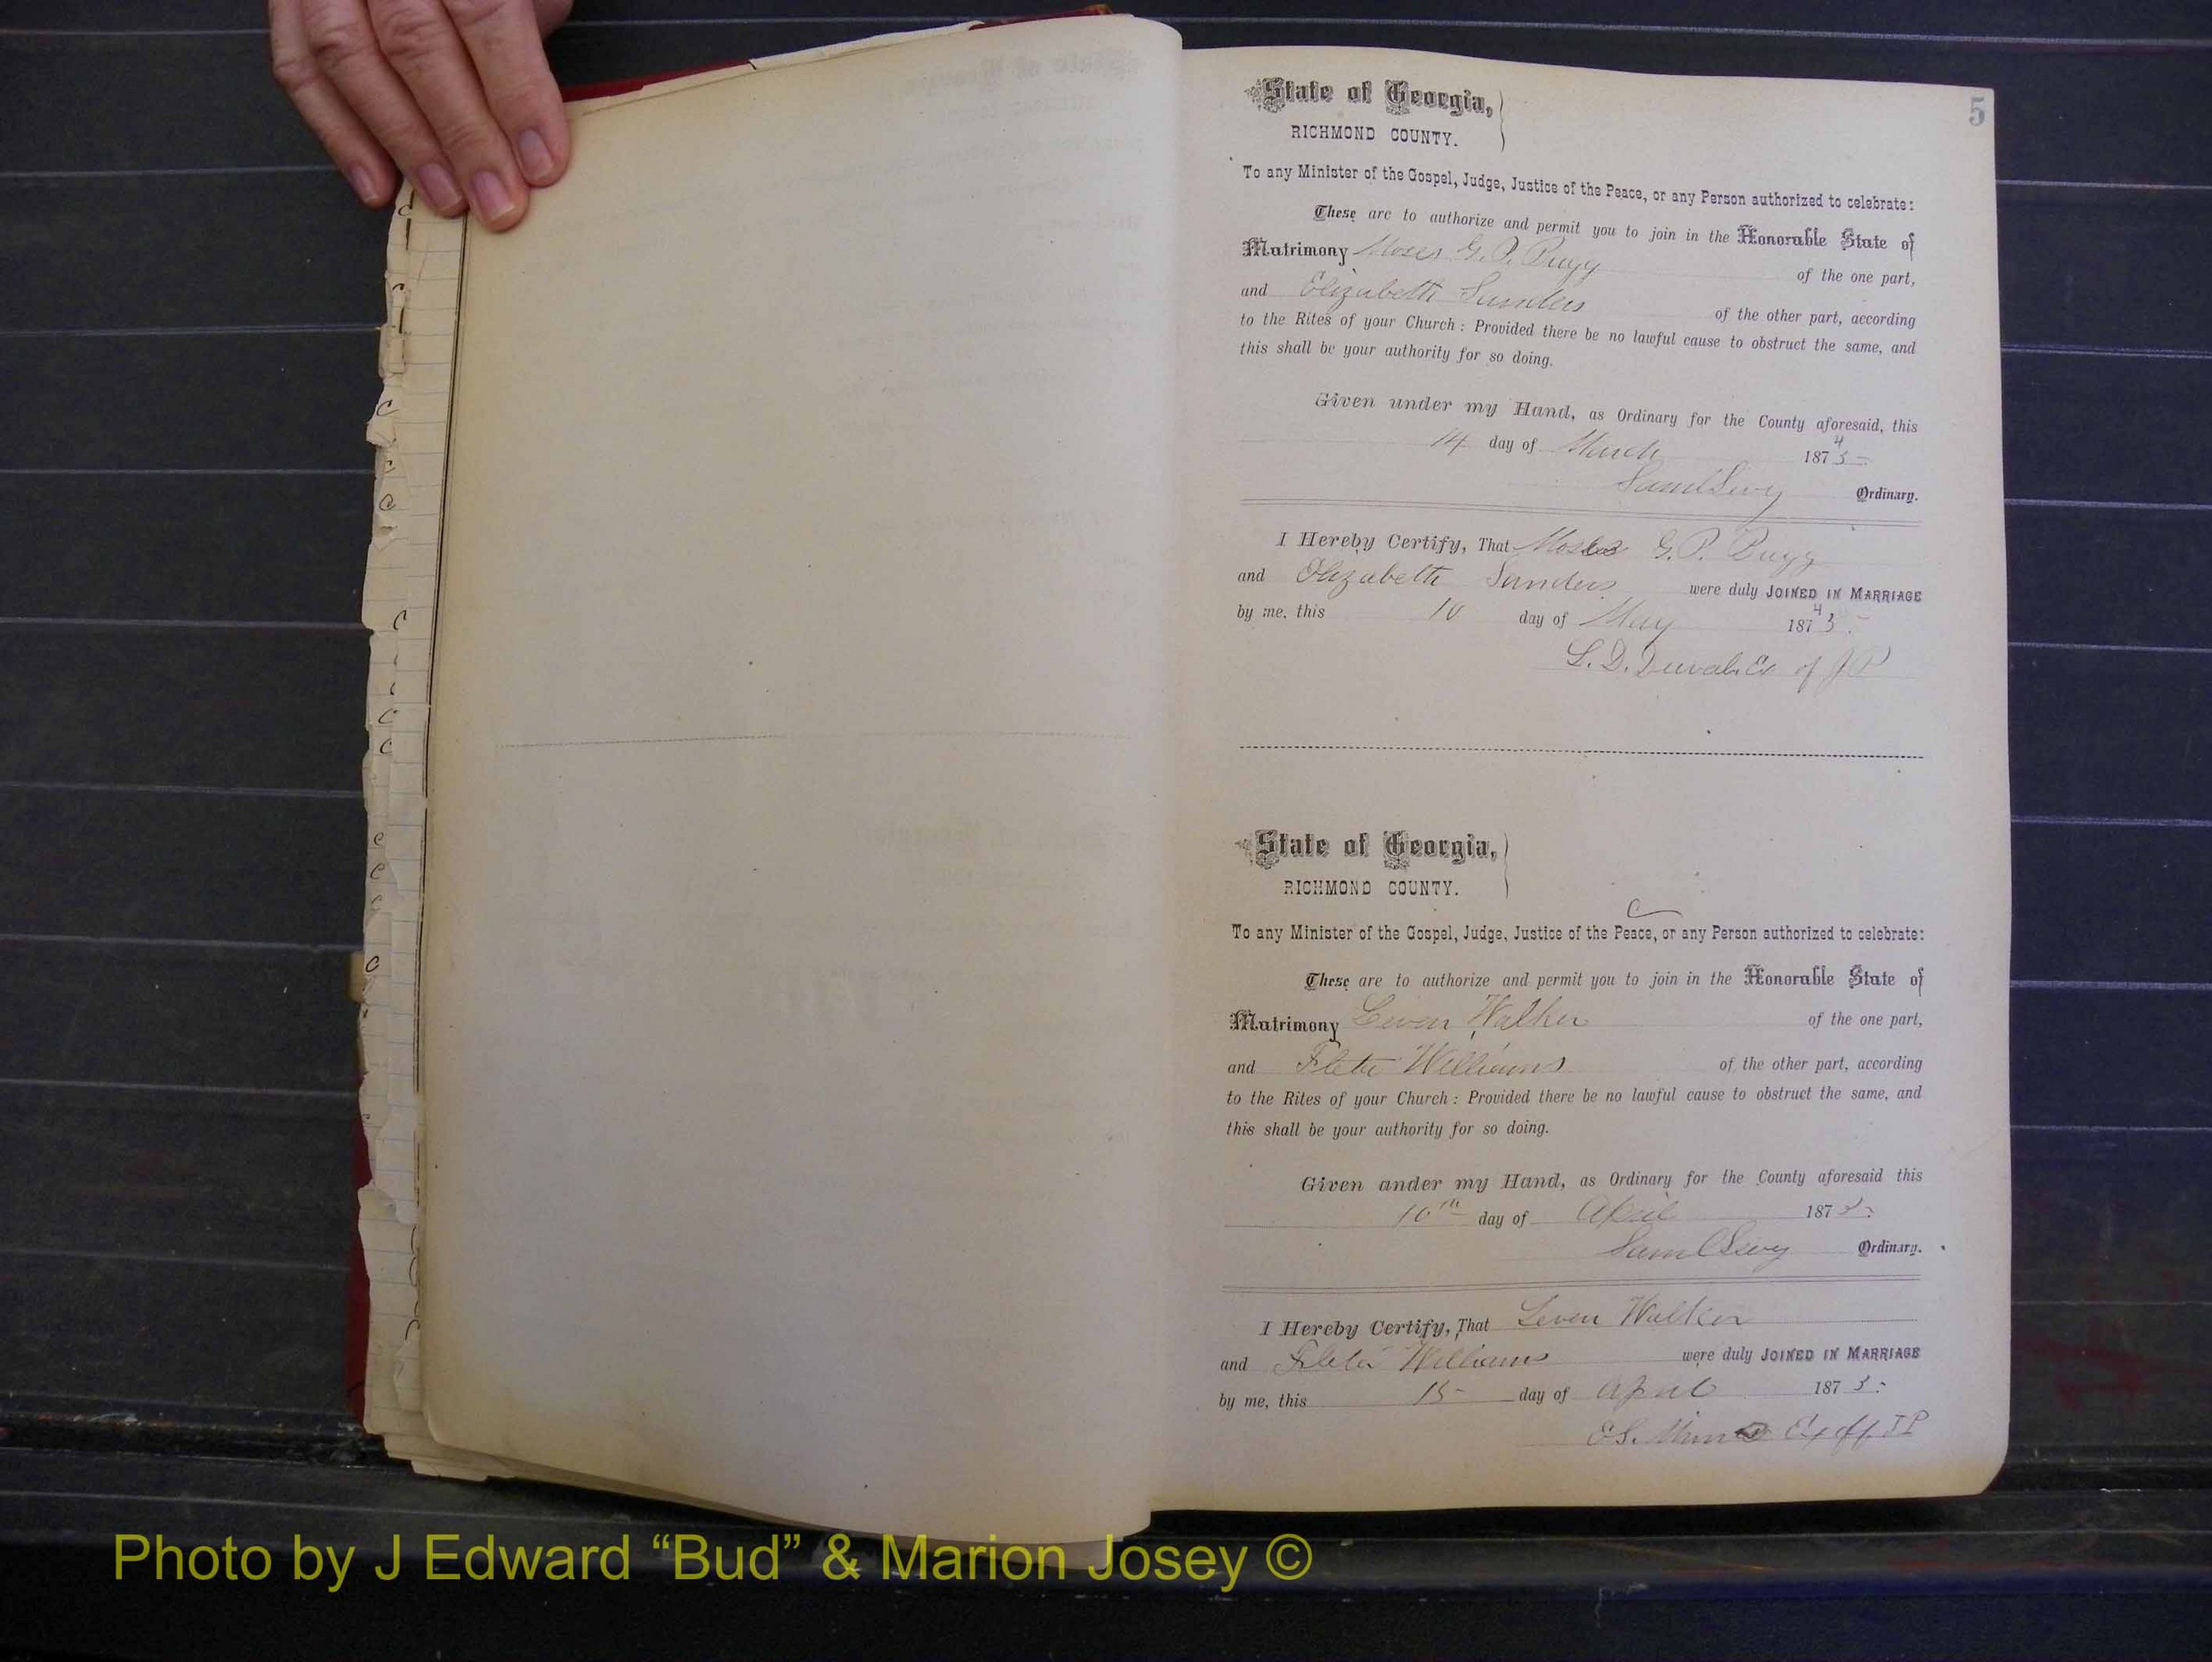 5
State of Georgia,
RICHMOND COUNTY.
To any Minister of the Gospel, Judge, Justice of the Peace, or any Person authorized to celebrate:
These are to authorize and permit you to join in the Honorable State of
Matrimony Moses G. P. Bugg of the one part,
and Elizabeth Sanders of the other part, according
to the Rites of your Church: Provided there be no lawful cause to obstruct the same, and
this shall be your authority for so doing.
Given under my Hand, as Ordinary for the County aforesaid, this
4
14 day of March 1873
Saml Levy Ordinary.
I Hereby Certify, That Moses G. P. Bugg
and Elizabeth Sanders were duly JOINED IN MARRIAGE
4
by me, this 10 day of May 1873.
L. D. Duval Ex of J P
State of Georgia,
RICHMOND COUNTY.
C
To any Minister of the Gospel, Judge, Justice of the Peace, or any Person authorized to celebrate:
These are to authorize and permit you to join in the Honorable State of
Matrimony Leven Walker of the one part,
and Williams of the other part, according
to the Rites of your Church: Provided there be no lawful cause to obstruct the same, and
this shall be your authority for so doing.
Given under my Hand, as Ordinary for the County aforesaid this
10th day of April 187
Saml Levy Ordinary.
I Hereby Certify, That Leven Walker
and Williams were duly JOINED IN MARRIAGE
by me, this 15 day of April 1873.
E S. Ex off J P
Photo by J Edward “Bud” & Marion Josey ©